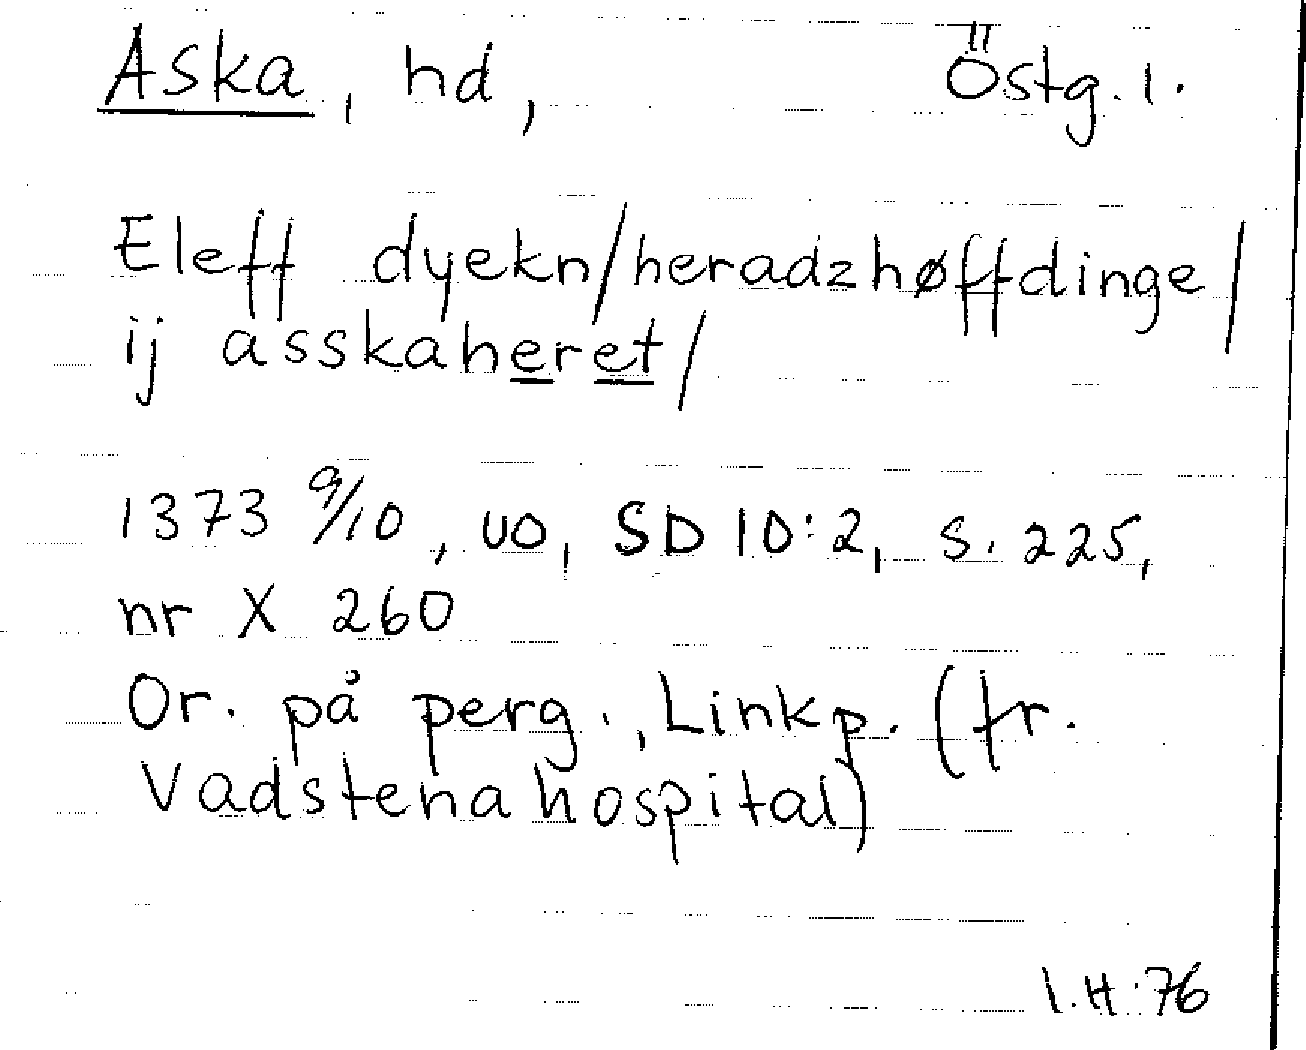 Aska, hd, Östg. l.
Eleff dyekn/heradzhøffdinge/
ij asskaheret/
1373 9/10, uo, SD 10:2, s. 225,
nr X 260
Or. på perg., Linkp. (fr.
Vadstena hospital)
I.H. 76